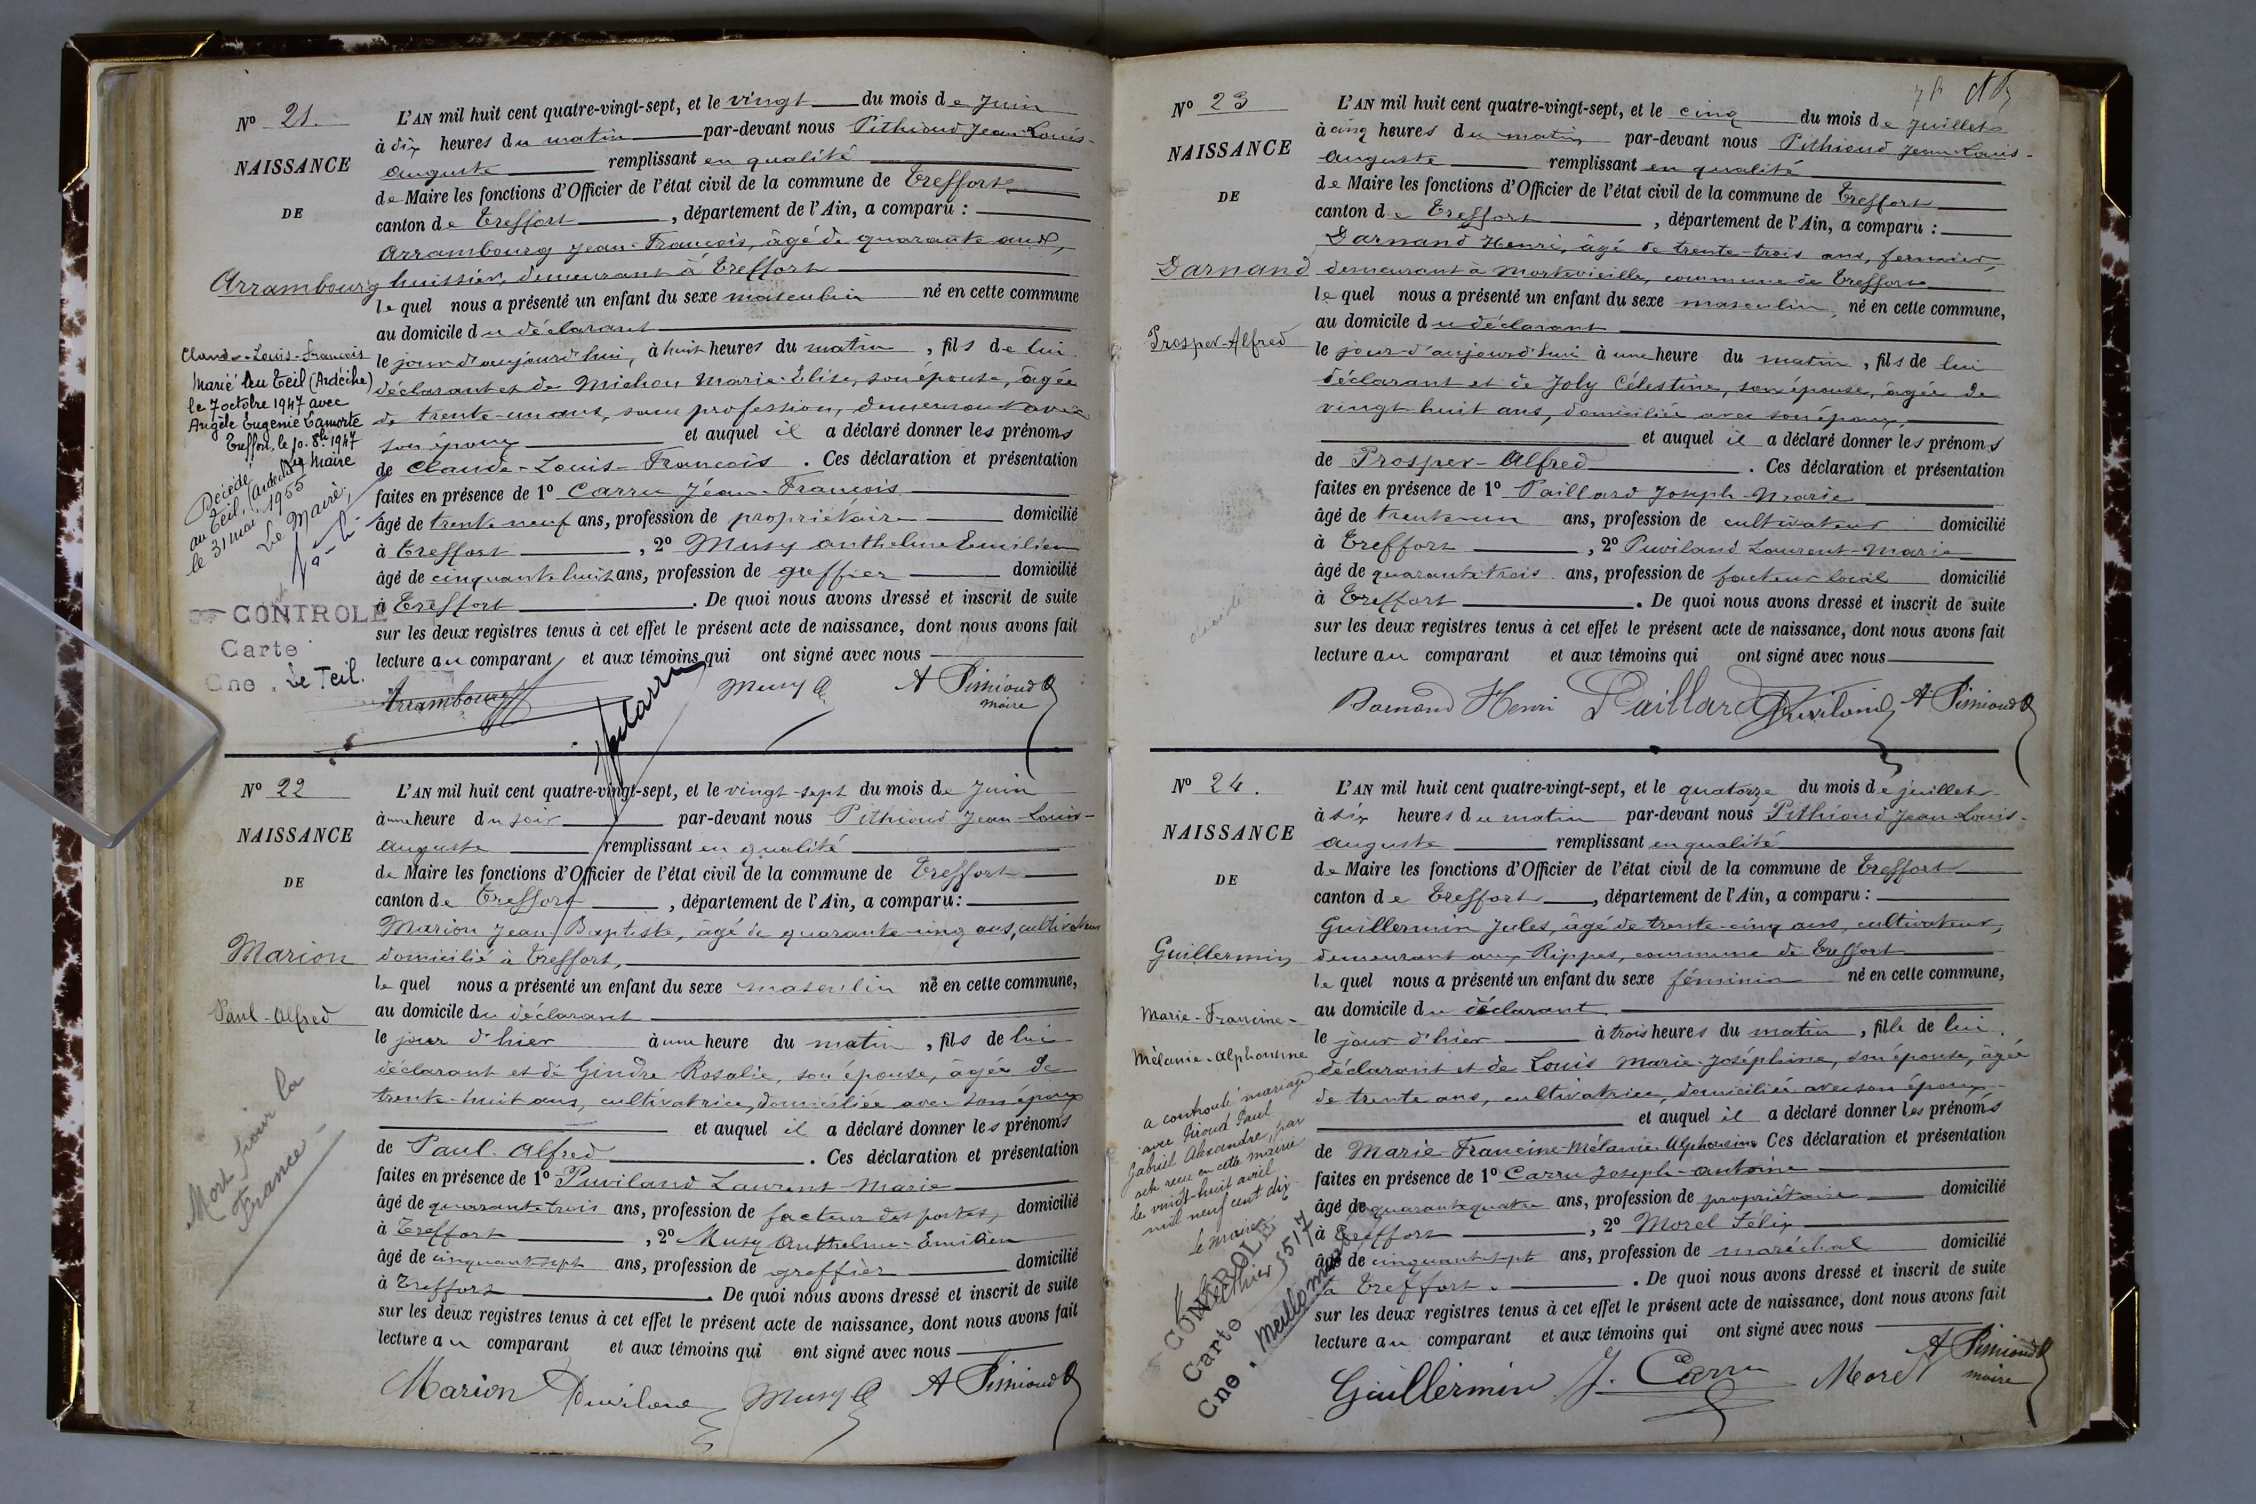 N° 21.
NAISSANCE
DE
Arrambourg
Claude-Louis-François
Marié au Teil (Ardèche)
le 7 octobre 1947 avec
Angèle Eugénie Lamorte
Treffort, le 10. 8bre 1947
Le Maire
Décédé
au Teil, (Ardèche)
le 31 mai 1955
Le Maire,
CONTROLE
Carte
Cne. Le Teil.
L'AN mil huit cent quatre-vingt-sept, et le vingt du mois de Juin
à dix heures du matin par-devant nous Pithioud Jean-Louis-
Auguste remplissant en qualité
de Maire les fonctions d'Officier de l'état civil de la commune de Treffort
canton de Treffort, département de l'Ain, a comparu :
Arrambourg Jean-François, âgé de quarante ans,
huissier, demeurant à Treffort
lequel nous a présenté un enfant du sexe masculin né en cette commune
au domicile du déclarant
le jour d'aujourd'hui, à huit heures du matin, fils de lui
déclarant et de Michou Marie-Elise, son épouse, âgée
de trente-un ans, sans profession, demeurant avec
son époux et auquel il a déclaré donner les prénoms
de Claude-Louis-François. Ces déclaration et présentation
faites en présence de 1° Carru Jean-François
âgé de trente neuf ans, profession de propriétaire domicilié
à Treffort, 2° Musy Anthelme Emilien
âgé de cinquante huit ans, profession de greffier domicilié
à Treffort. De quoi nous avons dressé et inscrit de suite
sur les deux registres tenus à cet effet le présent acte de naissance, dont nous avons fait
lecture au comparant et aux témoins qui ont signé avec nous
Arrambourg Carru Musy A Pithioud
maire
N° 22
NAISSANCE
DE
Marion
Paul-Alfred
Mort pour la
France
L'AN mil huit cent quatre-vingt-sept, et le vingt-sept du mois de Juin
à une heure du soir par-devant nous Pithioud Jean-Louis-
Auguste remplissant en qualité
de Maire les fonctions d'Officier de l'état civil de la commune de Treffort
canton de Treffort, département de l'Ain, a comparu :
Marion Jean Baptiste, âgé de quarante-cinq ans, cultivateur
domicilié à Treffort,
lequel nous a présenté un enfant du sexe masculin né en cette commune,
au domicile du déclarant
le jour d'hier à une heure du matin, fils de lui
déclarant et de Gindre Rosalie, son épouse, âgée de
trente-huit ans, cultivatrice, domiciliée avec son époux
et auquel il a déclaré donner les prénoms
de Paul-Alfred. Ces déclaration et présentation
faites en présence de 1° Puviland Laurent-Marie
âgé de quarante trois ans, profession de facteur des postes, domicilié
à Treffort, 2° Musy Anthelme-Emilien
âgé de cinquante sept ans, profession de greffier domicilié
à Treffort. De quoi nous avons dressé et inscrit de suite
sur les deux registres tenus à cet effet le présent acte de naissance, dont nous avons fait
lecture au comparant et aux témoins qui ont signé avec nous
Marion Puviland Musy A Pithioud
N° 23
NAISSANCE
DE
Darnand
Prosper-Alfred
L'AN mil huit cent quatre-vingt-sept, et le cinq du mois de Juillet
à cinq heures du matin par-devant nous Pithioud Jean-Louis-
Auguste remplissant en qualité
de Maire les fonctions d'Officier de l'état civil de la commune de Treffort
canton de Treffort, département de l'Ain, a comparu :
Darnand Henri, âgé de trente-trois ans, fermier,
demeurant à Mortevieille, commune de Treffort
lequel nous a présenté un enfant du sexe masculin, né en cette commune,
au domicile du déclarant
le jour d'aujourd'hui à une heure du matin, fils de lui
déclarant et de Joly Célestine, son épouse, âgée de
vingt-huit ans, domiciliée avec son époux,
et auquel il a déclaré donner les prénoms
de Prosper-Alfred. Ces déclaration et présentation
faites en présence de 1° Paillard Joseph-Marie
âgé de trente-un ans, profession de cultivateur domicilié
à Treffort, 2° Puviland Laurent-Marie
âgé de quarante trois ans, profession de facteur local domicilié
à Treffort. De quoi nous avons dressé et inscrit de suite
sur les deux registres tenus à cet effet le présent acte de naissance, dont nous avons fait
lecture au comparant et aux témoins qui ont signé avec nous
Darnand Henri Paillard Puviland A Pithioud
N° 24.
NAISSANCE
DE
Guillermin
Marie-Francine-
Mélanie-Alphonsine
a contracté mariage
avec Giroud Paul
Gabriel Alexandre, par
acte reçu en cette mairie
le vingt-huit avril
mil neuf cent dix
Le maire,
CONTROLE
Carte
Cne.
L'AN mil huit cent quatre-vingt-sept, et le quatorze du mois de juillet
à six heures du matin par-devant nous Pithioud Jean-Louis-
Auguste remplissant en qualité
de Maire les fonctions d'Officier de l'état civil de la commune de Treffort
canton de Treffort, département de l'Ain, a comparu :
Guillermin Jules, âgé de trente-cinq ans, cultivateur,
demeurant aux Rippes, commune de Treffort
lequel nous a présenté un enfant du sexe féminin né en cette commune,
au domicile du déclarant
le jour d'hier à trois heures du matin, fille de lui
déclarant et de Louis Marie-Joséphine, son épouse, âgée
de trente ans, cultivatrice, domiciliée avec son époux
et auquel il a déclaré donner les prénoms
de Marie-Francine-Mélanie-Alphonsine Ces déclaration et présentation
faites en présence de 1° Carru Joseph-Antoine
âgé de quarante quatre ans, profession de propriétaire domicilié
à Treffort, 2° Morel Félix
âgé de cinquante sept ans, profession de maréchal domicilié
à Treffort. De quoi nous avons dressé et inscrit de suite
sur les deux registres tenus à cet effet le présent acte de naissance, dont nous avons fait
lecture au comparant et aux témoins qui ont signé avec nous
Guillermin J. Carru Morel A Pithioud
maire